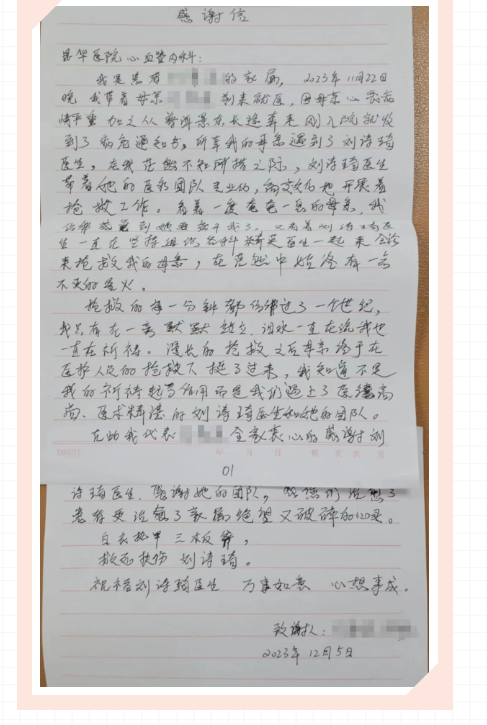 感谢信
昆华医院心血管内科：
我是患者 的家属，2023年11月22日
晚 我带着母亲 到来就医，因母亲心衰病
情严重 加之从 长途奔来 刚入院就收
到了病危通知书，所幸我的母亲遇到了刘诗琦
医生，在我茫然不知所措之际，刘诗琦医生
带着她的医疗团队 专业的，有条不紊地 开展着
抢救工作。看着一度奄奄一息的母亲，我
仿佛 到她要离开我了，又看着刘诗琦医
生一直在坚持组织各科精英医生一起来会诊
来抢救我的母亲，在茫然中始终有一点
不灭的星火。
抢救的每一分钟都仿佛过了一个世纪，
我只有在一旁默默独立，泪水一直在流我也
一直在祈祷。漫长的抢救之后母亲终于在
医护人员的抢救下挺了过来，我知道不是
我的祈祷起了作用而是我们遇上了医德高
尚、医术精湛的刘诗琦医生和她的团队。
在此我代表 全家衷心的感谢刘
01
诗琦医生，感谢她的团队，您们治愈了
患者更治愈了家属绝望又破碎的心灵。
白衣执甲 三
救死扶伤 刘诗琦。
祝福刘诗琦医生 万事如意 心想事成。
致谢人：
2023年12月5日